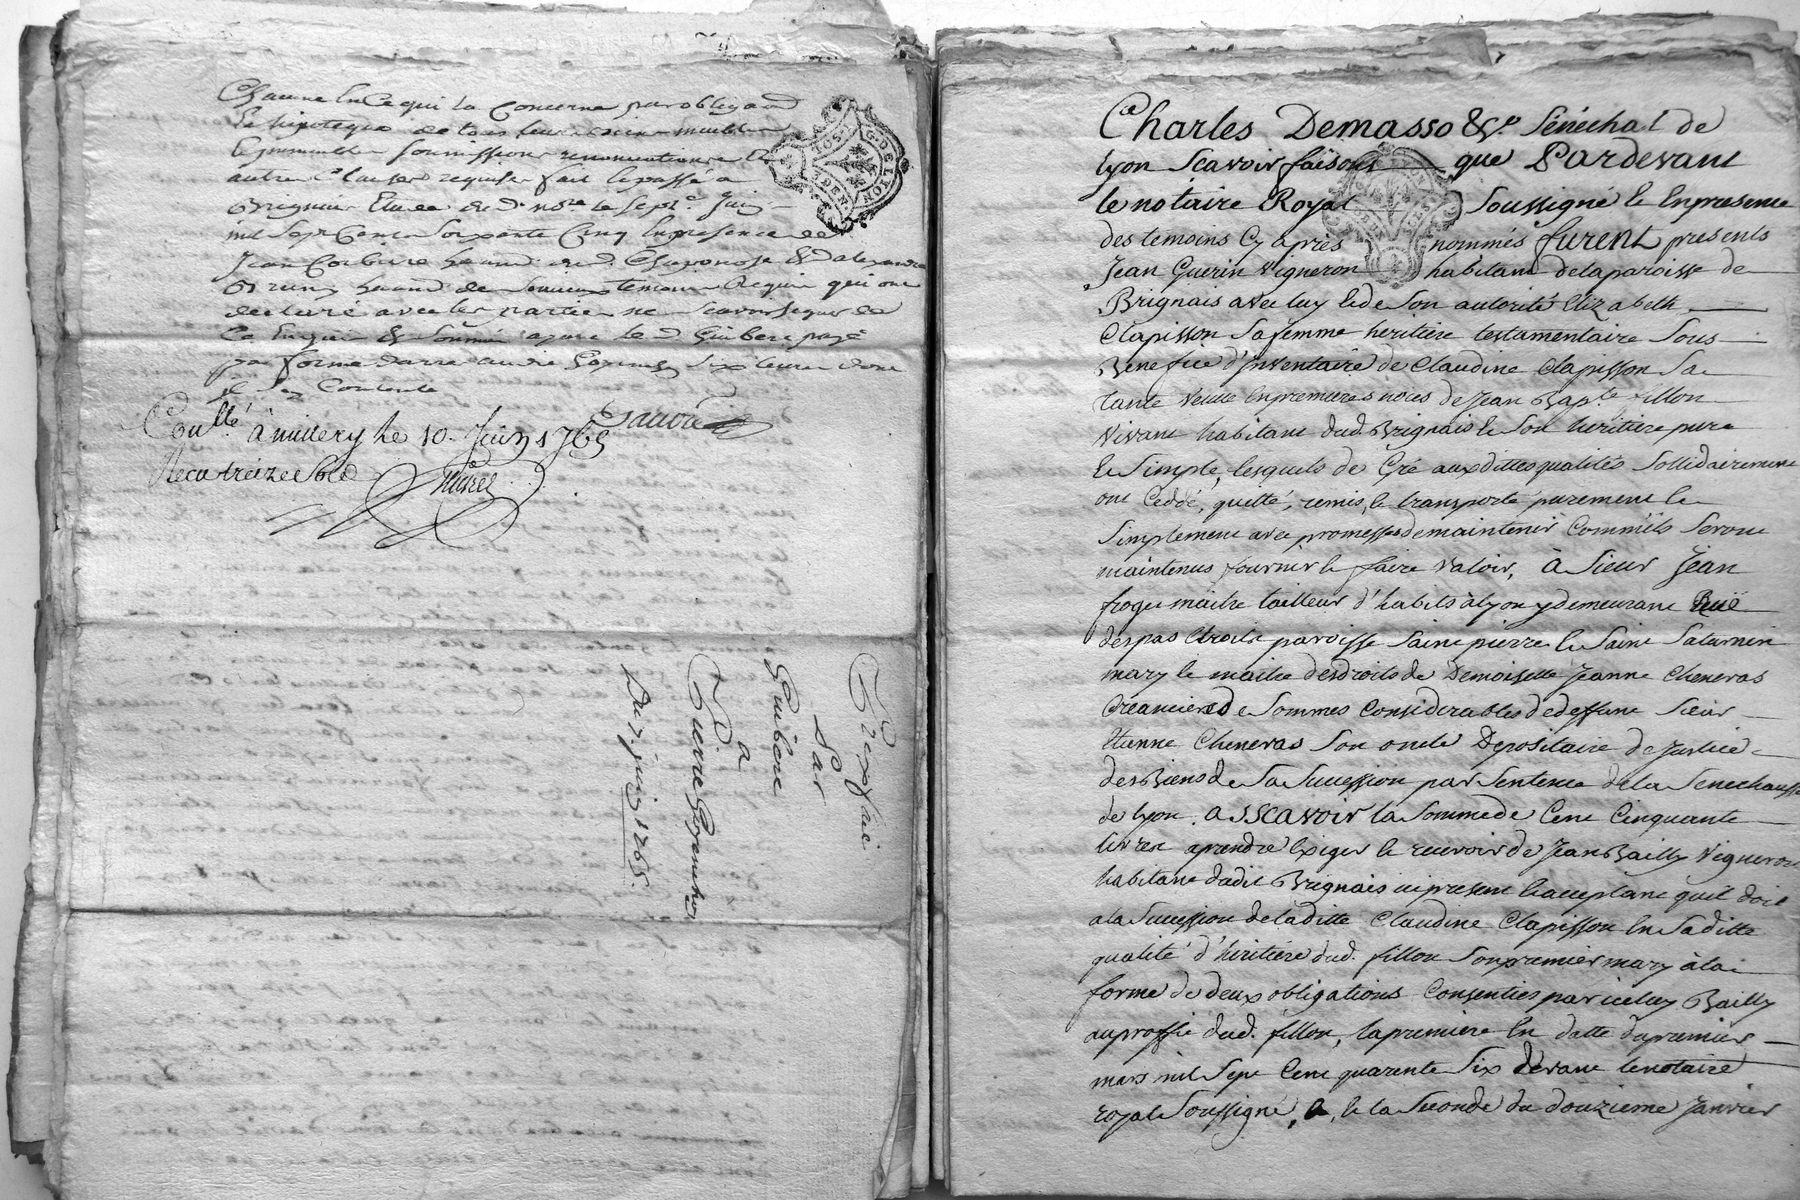 Chacune En Ce qui la Concerne par obligaōn
Et hipoteque de tous leurs biens meubles
Et immeubles soumissions renonciations Et
autres Clauses requises fait Et passé a
Brignais Etude dud. no.re le sept.e Juin
mil Sept Cent Soixante Cinq En presence de
Jean
temoins Requis qui ont
declaré avec les parties ne scavoir signer de
Ce Enquis & Sommé
par forme six livres dont
il Est Content
Con.llé à millery le 10. Juin 1765
Recu treize Sols
G. DE LYON
Par
Guibere
a
Pierre
Du 7. juin 1765.
Charles Demasso &c.a Sénéchal de
lyon Scavoir faisons que Pardevant
le notaire Royal Soussigné & En presence
des temoins Cy après nommés furent presents
Jean Guerin Vigneron habitant de la paroisse de
Brignais avec luy & de Son autorité Elizabeth
Clapisson Sa femme heritiere testamentaire Sous
Benefice d'Inventaire de Claudine Clapisson Sa
tante Veuve En premieres nôces de Jean Bap.te fillon
Vivant habitant dud. Brignais & Son heritiere pure
& Simple, lesquels de Gré aux dittes qualités Sollidairement
ont Ceddé, quitté, remis, & transporté purement &
Simplement avec promesses de maintenir Comm'ils Seront
maintenus fournir & faire Valoir, à Sieur Jean
froger maitre tailleur d'habits à lyon y demeurant Ruë
des pas Etroits paroisse Saint pierre & Saint Saturnin
mary & maitre des droits de Demoiselle Jeanne Cheneras
Creanciere de Sommes Considerables de deffunt Sieur
Etienne Cheneras Son oncle Depositaire de Justice
des Biens de Sa Succession par Sentence de la Senechaussée
de lyon. a SSCavoir la Somme de Cent Cinquante
livres a prendre Exiger & recevoir de Jean Bailly Vigneron
habitant dudit Brignais ici present & acceptant qu'il doit
a la Succession de la ditte Claudine Clapisson En Sa ditte
qualité d'héritiére dud. fillon Son premier mary à la
forme de deux obligations Consenties par iceluy Bailly
au proffit dud. fillon, la premiere En datte du premier
mars mil Sept Cent quarante Six devant le notaire
royal Soussigné, & la Seconde du douzieme Janvier